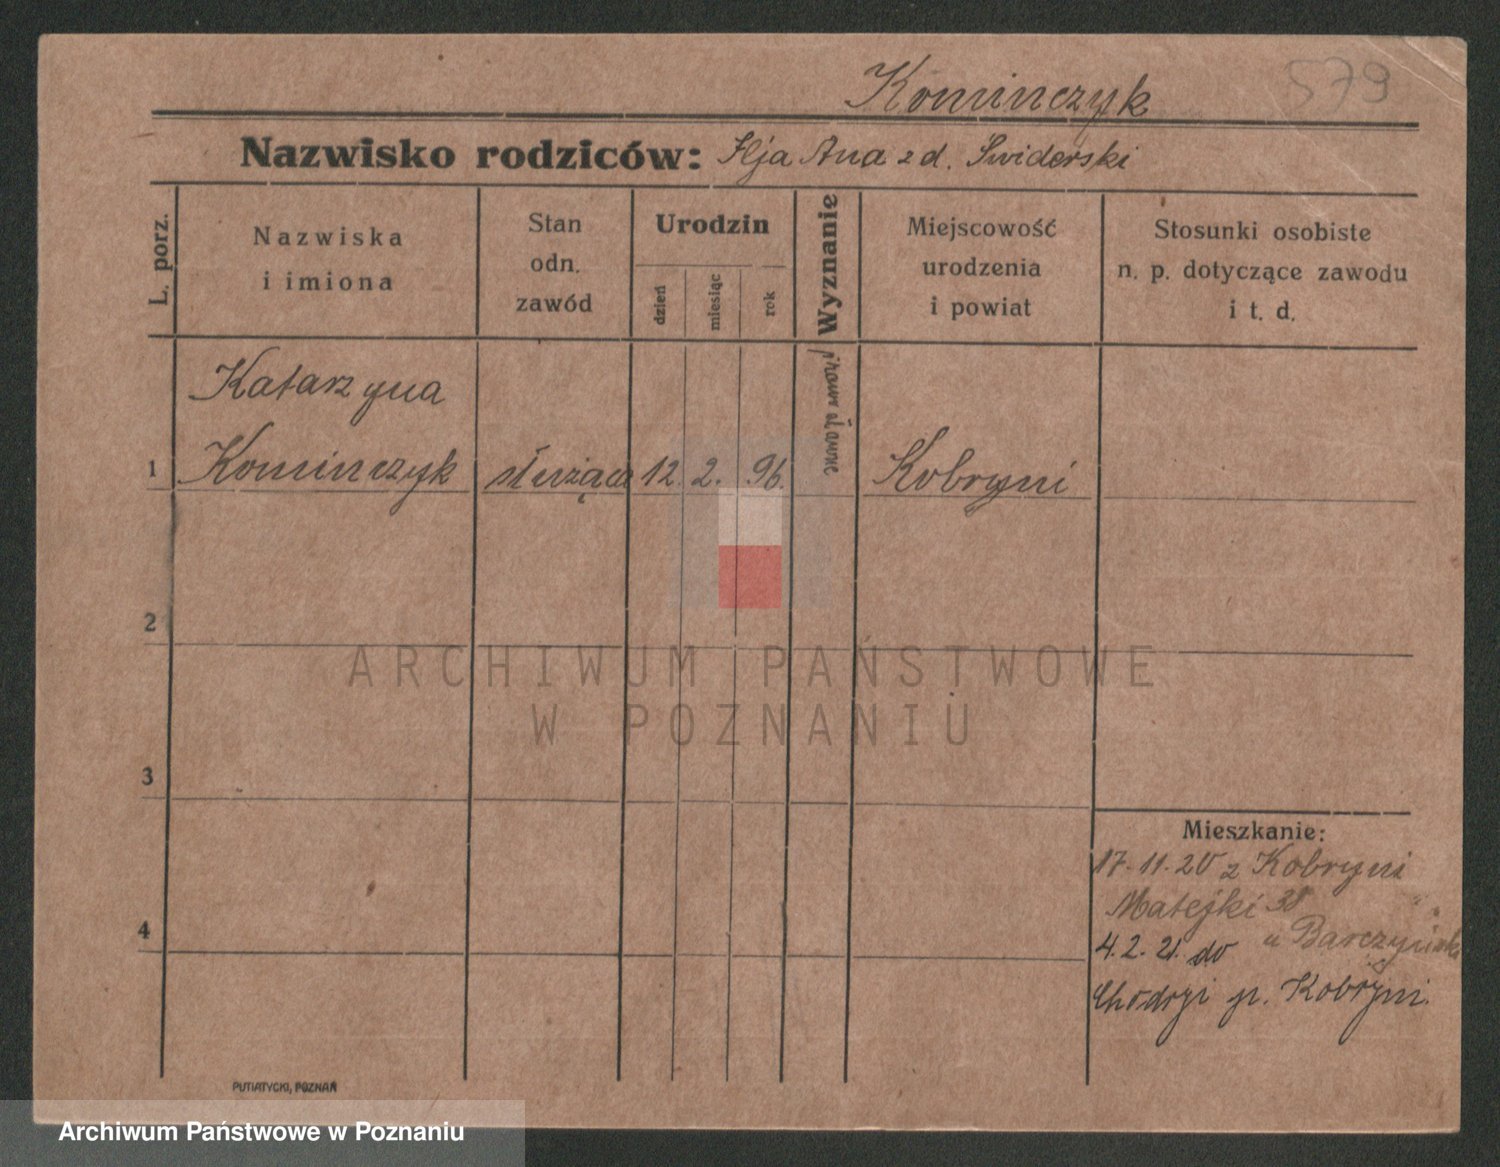 Kominczyk
579
Nazwisko rodziców: Ilja Ana z d. Swiderski
L. porz.
Nazwiska
i imiona
Stan
odn.
zawód
Urodzin
dzień
miesiąc
rok
Wyznanie
Miejscowość
urodzenia
i powiat
Stosunki osobiste
n. p. dotyczące zawodu
i t. d.
Katarzyna
1 Kominczyk służąca 12. 2. 96. Kobryni
2
3
4
Mieszkanie:
17. 11. 20 z Kobryni
Matejki 38
u
4. 2. 21. do
p. Kobryni.
PUTIATYCKI, POZNAŃ
ARCHIWUM PAŃSTWOWE
W POZNANIU
Archiwum Państwowe w Poznaniu